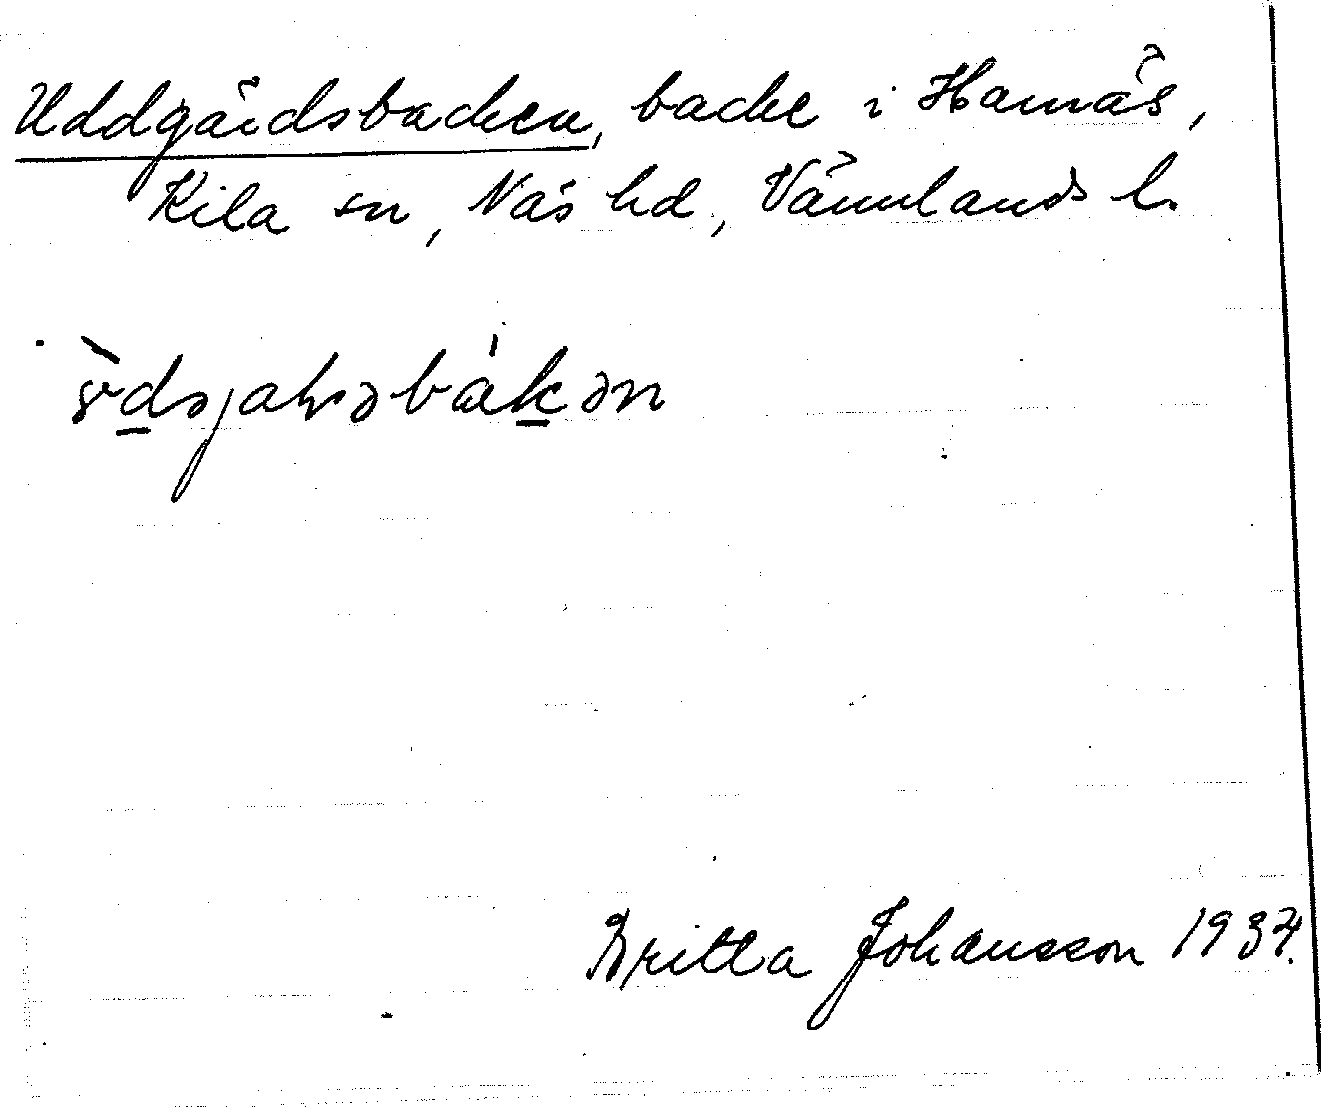 Uddgårdsbacken, backe i Hamnäs,
Kila sn, Näs hd, Värmlands l.
Britta Johansson 1937.